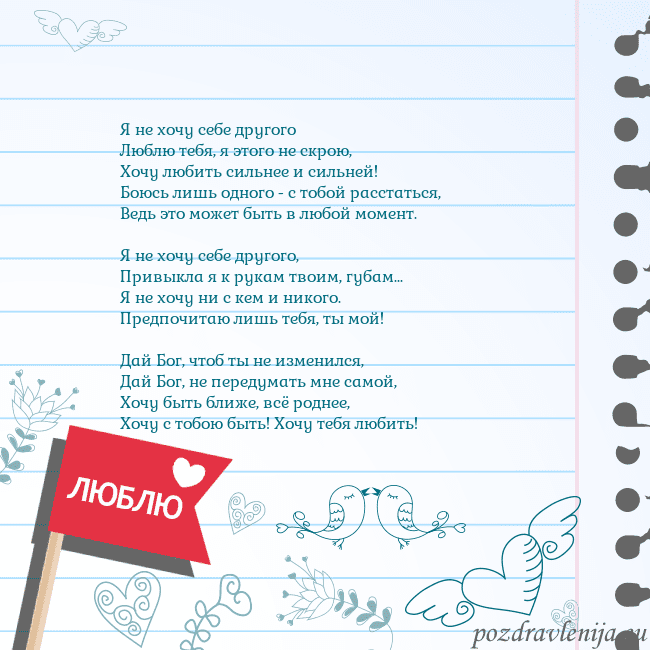 Я не хочу себе другого
Люблю тебя, я этого не скрою,
Хочу любить сильнее и сильней!
Боюсь лишь одного - с тобой расстаться,
Ведь это может быть в любой момент.
Я не хочу себе другого,
Привыкла я к рукам твоим, губам...
Я не хочу ни с кем и никого.
Предпочитаю лишь тебя, ты мой!
Дай Бог, чтоб ты не изменился,
Дай Бог, не передумать мне самой,
Хочу быть ближе, всё роднее,
Хочу с тобою быть! Хочу тебя любить!
ЛЮБЛЮ
pozdravlenija.eu